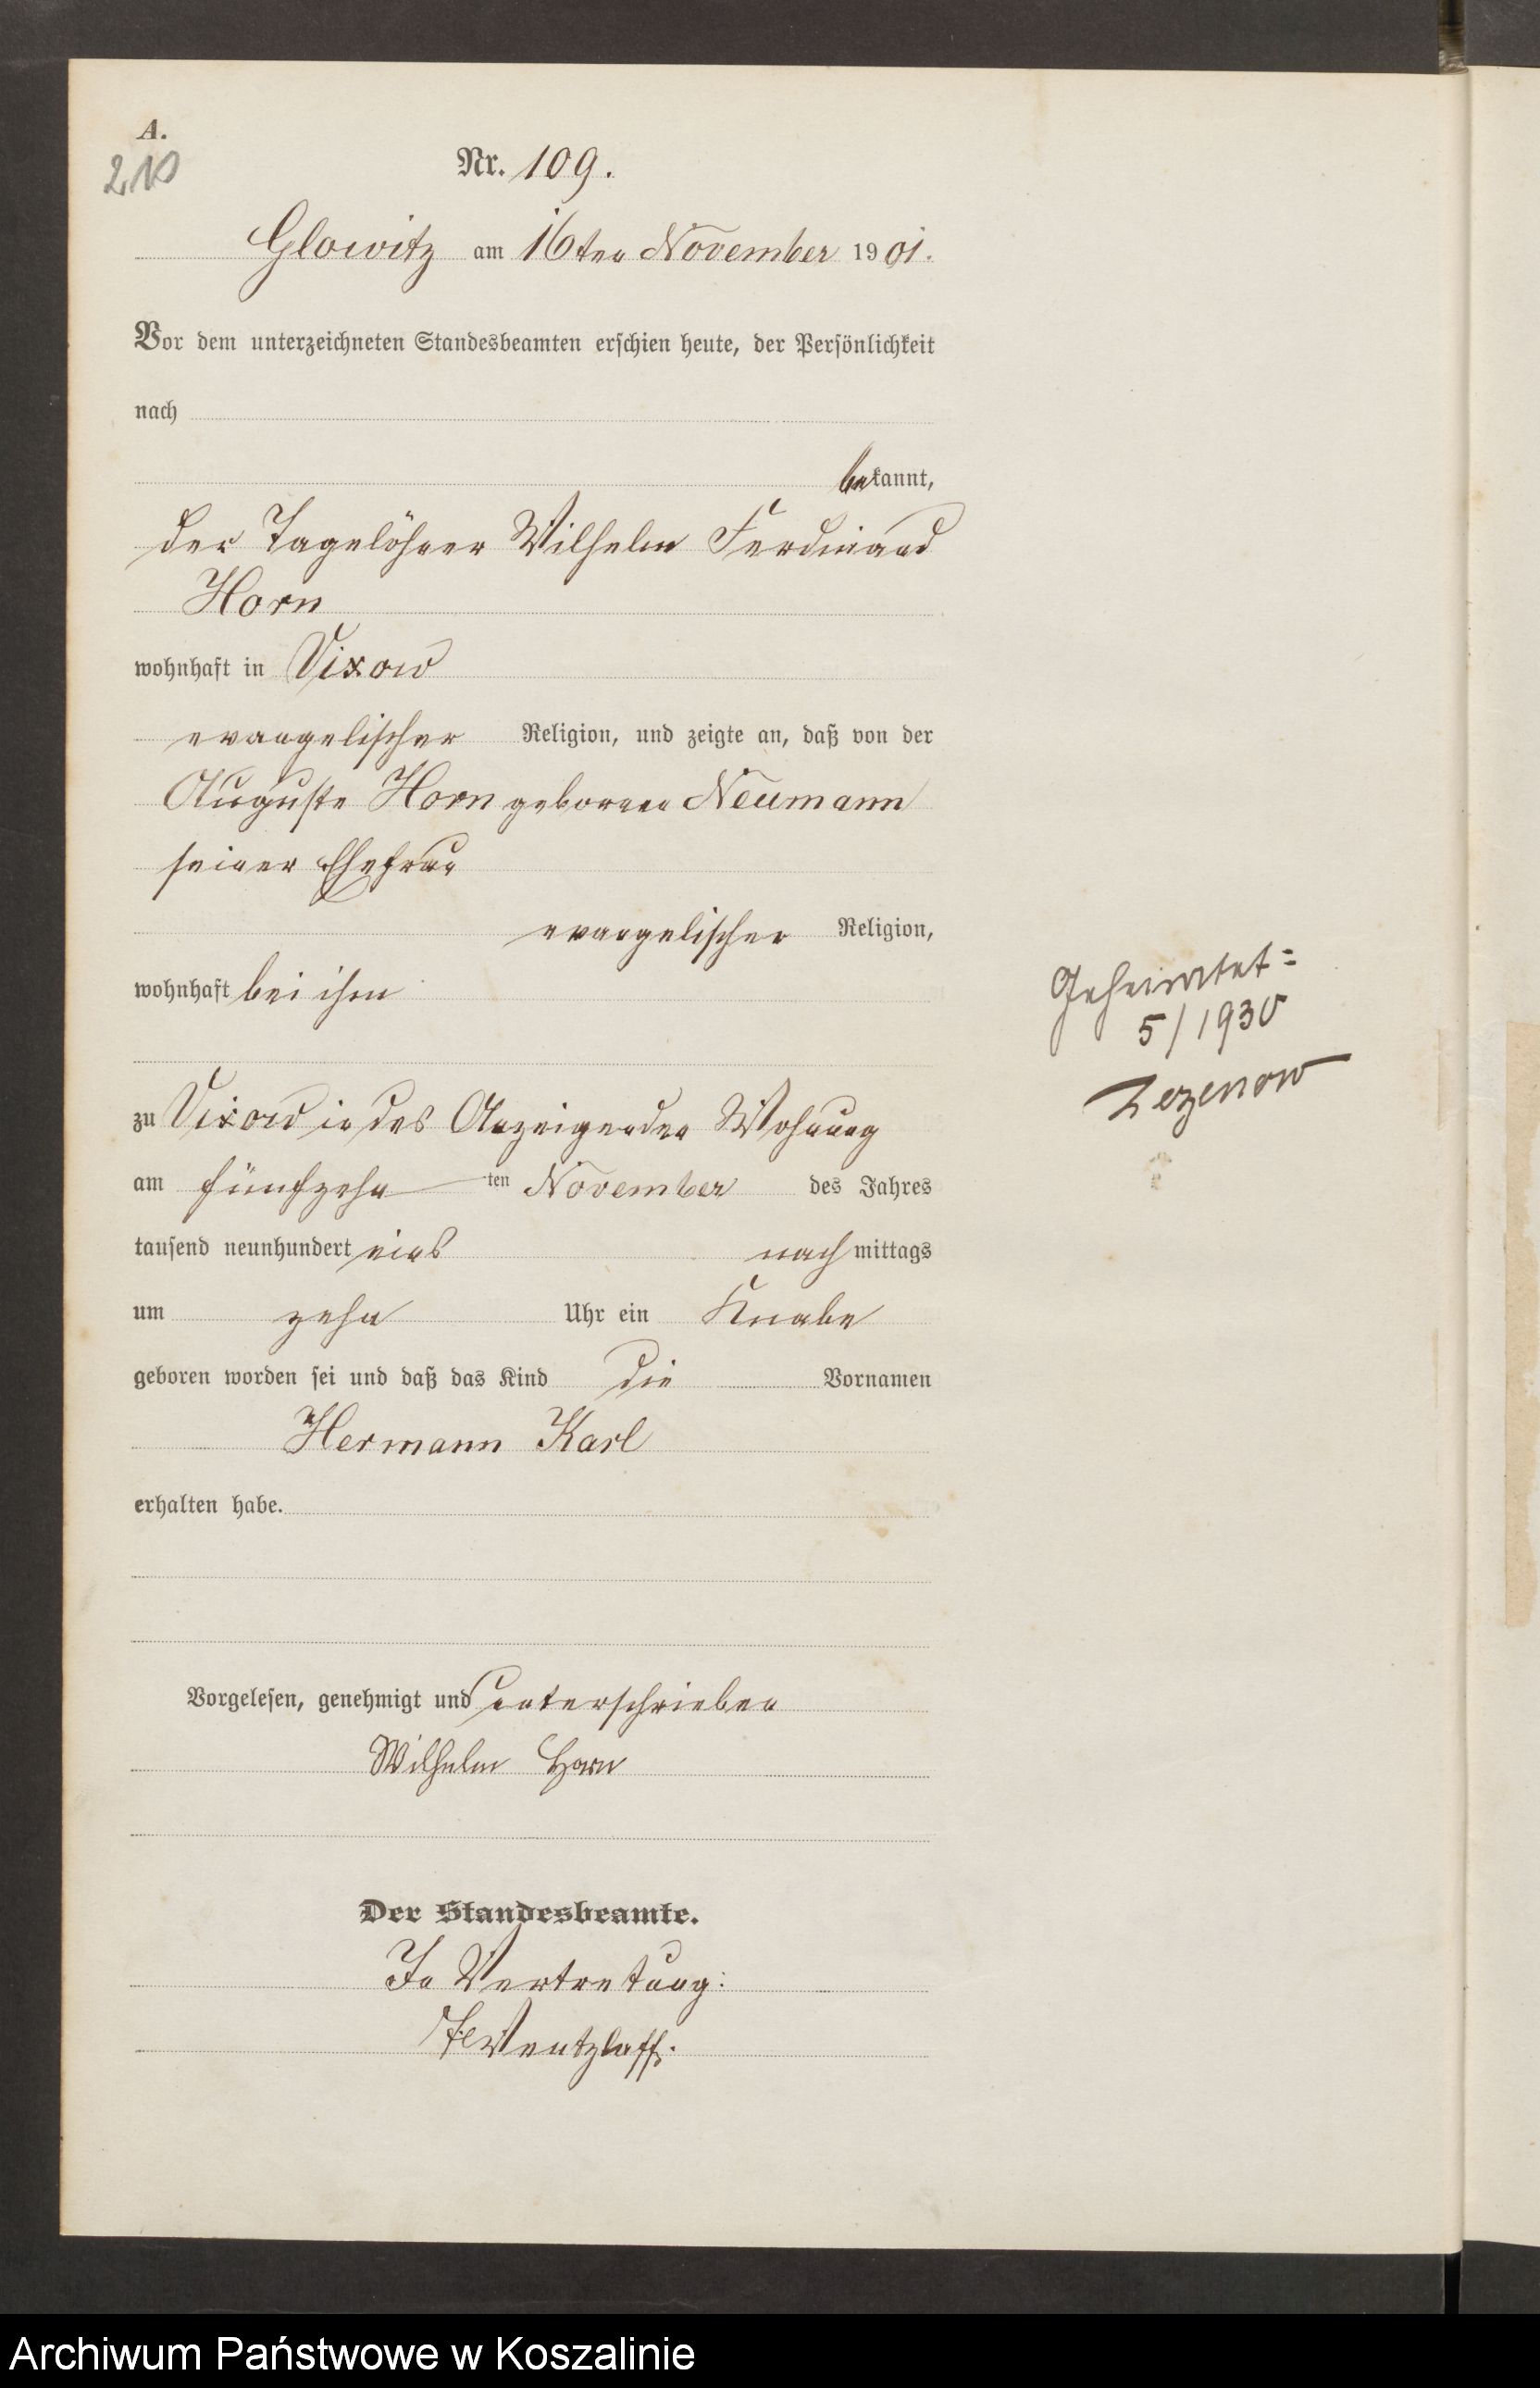 A.
210
Nr. 109.
Glowitz am 16ten November 1901.
Vor dem unterzeichneten Standesbeamten erschien heute, der Persönlichkeit
nach
bekannt,
der Tagelöhner Wilhelm Ferdinand
Horn
wohnhaft in Vixow
evangelischer Religion, und zeigte an, daß von der
Auguste Horn geborenen Neumann
seiner Ehefrau
evangelischer Religion,
wohnhaft bei ihm
Geheiratet:
5/1930
Zezenow
zu Vixow in des Anzeigenden Wohnung
am fünfzehn ten November des Jahres
tausend neunhundert eins nach mittags
um zehn Uhr ein Knabe
geboren worden sei und daß das Kind die Vornamen
Hermann Karl
erhalten habe.
Vorgelesen, genehmigt und unterschrieben
Wilhelm Horn
Der Standesbeamte.
In Vertretung:
Wentzlaff.
Archiwum Państwowe w Koszalinie